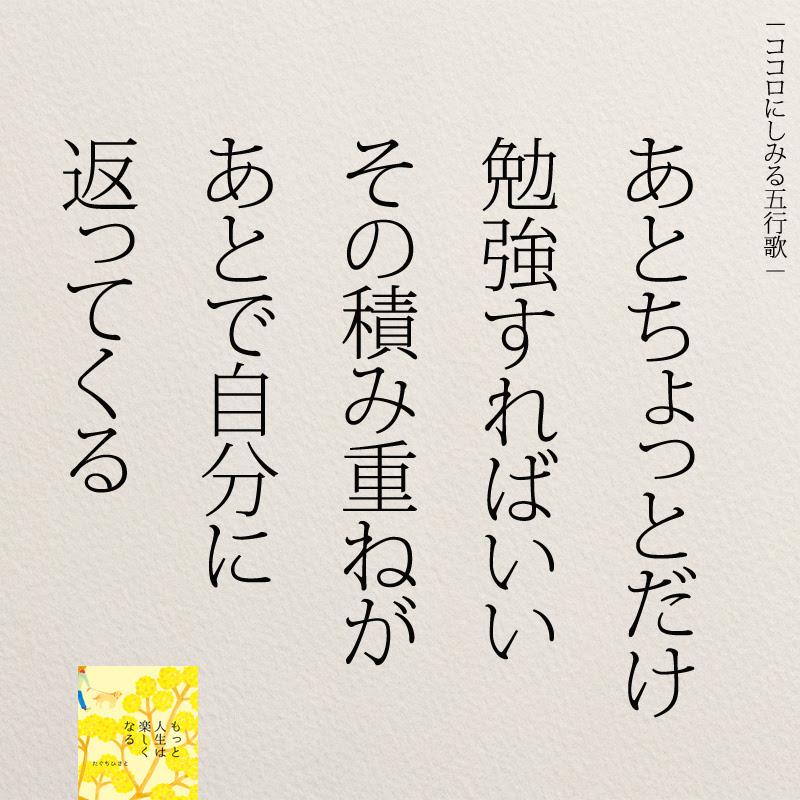 ―ココロにしみる五行歌―
あとちょっとだけ
勉強すればいい
その積み重ねが
あとで自分に
返ってくる
もっと
人生は
楽しく
なる
たぐちひさと